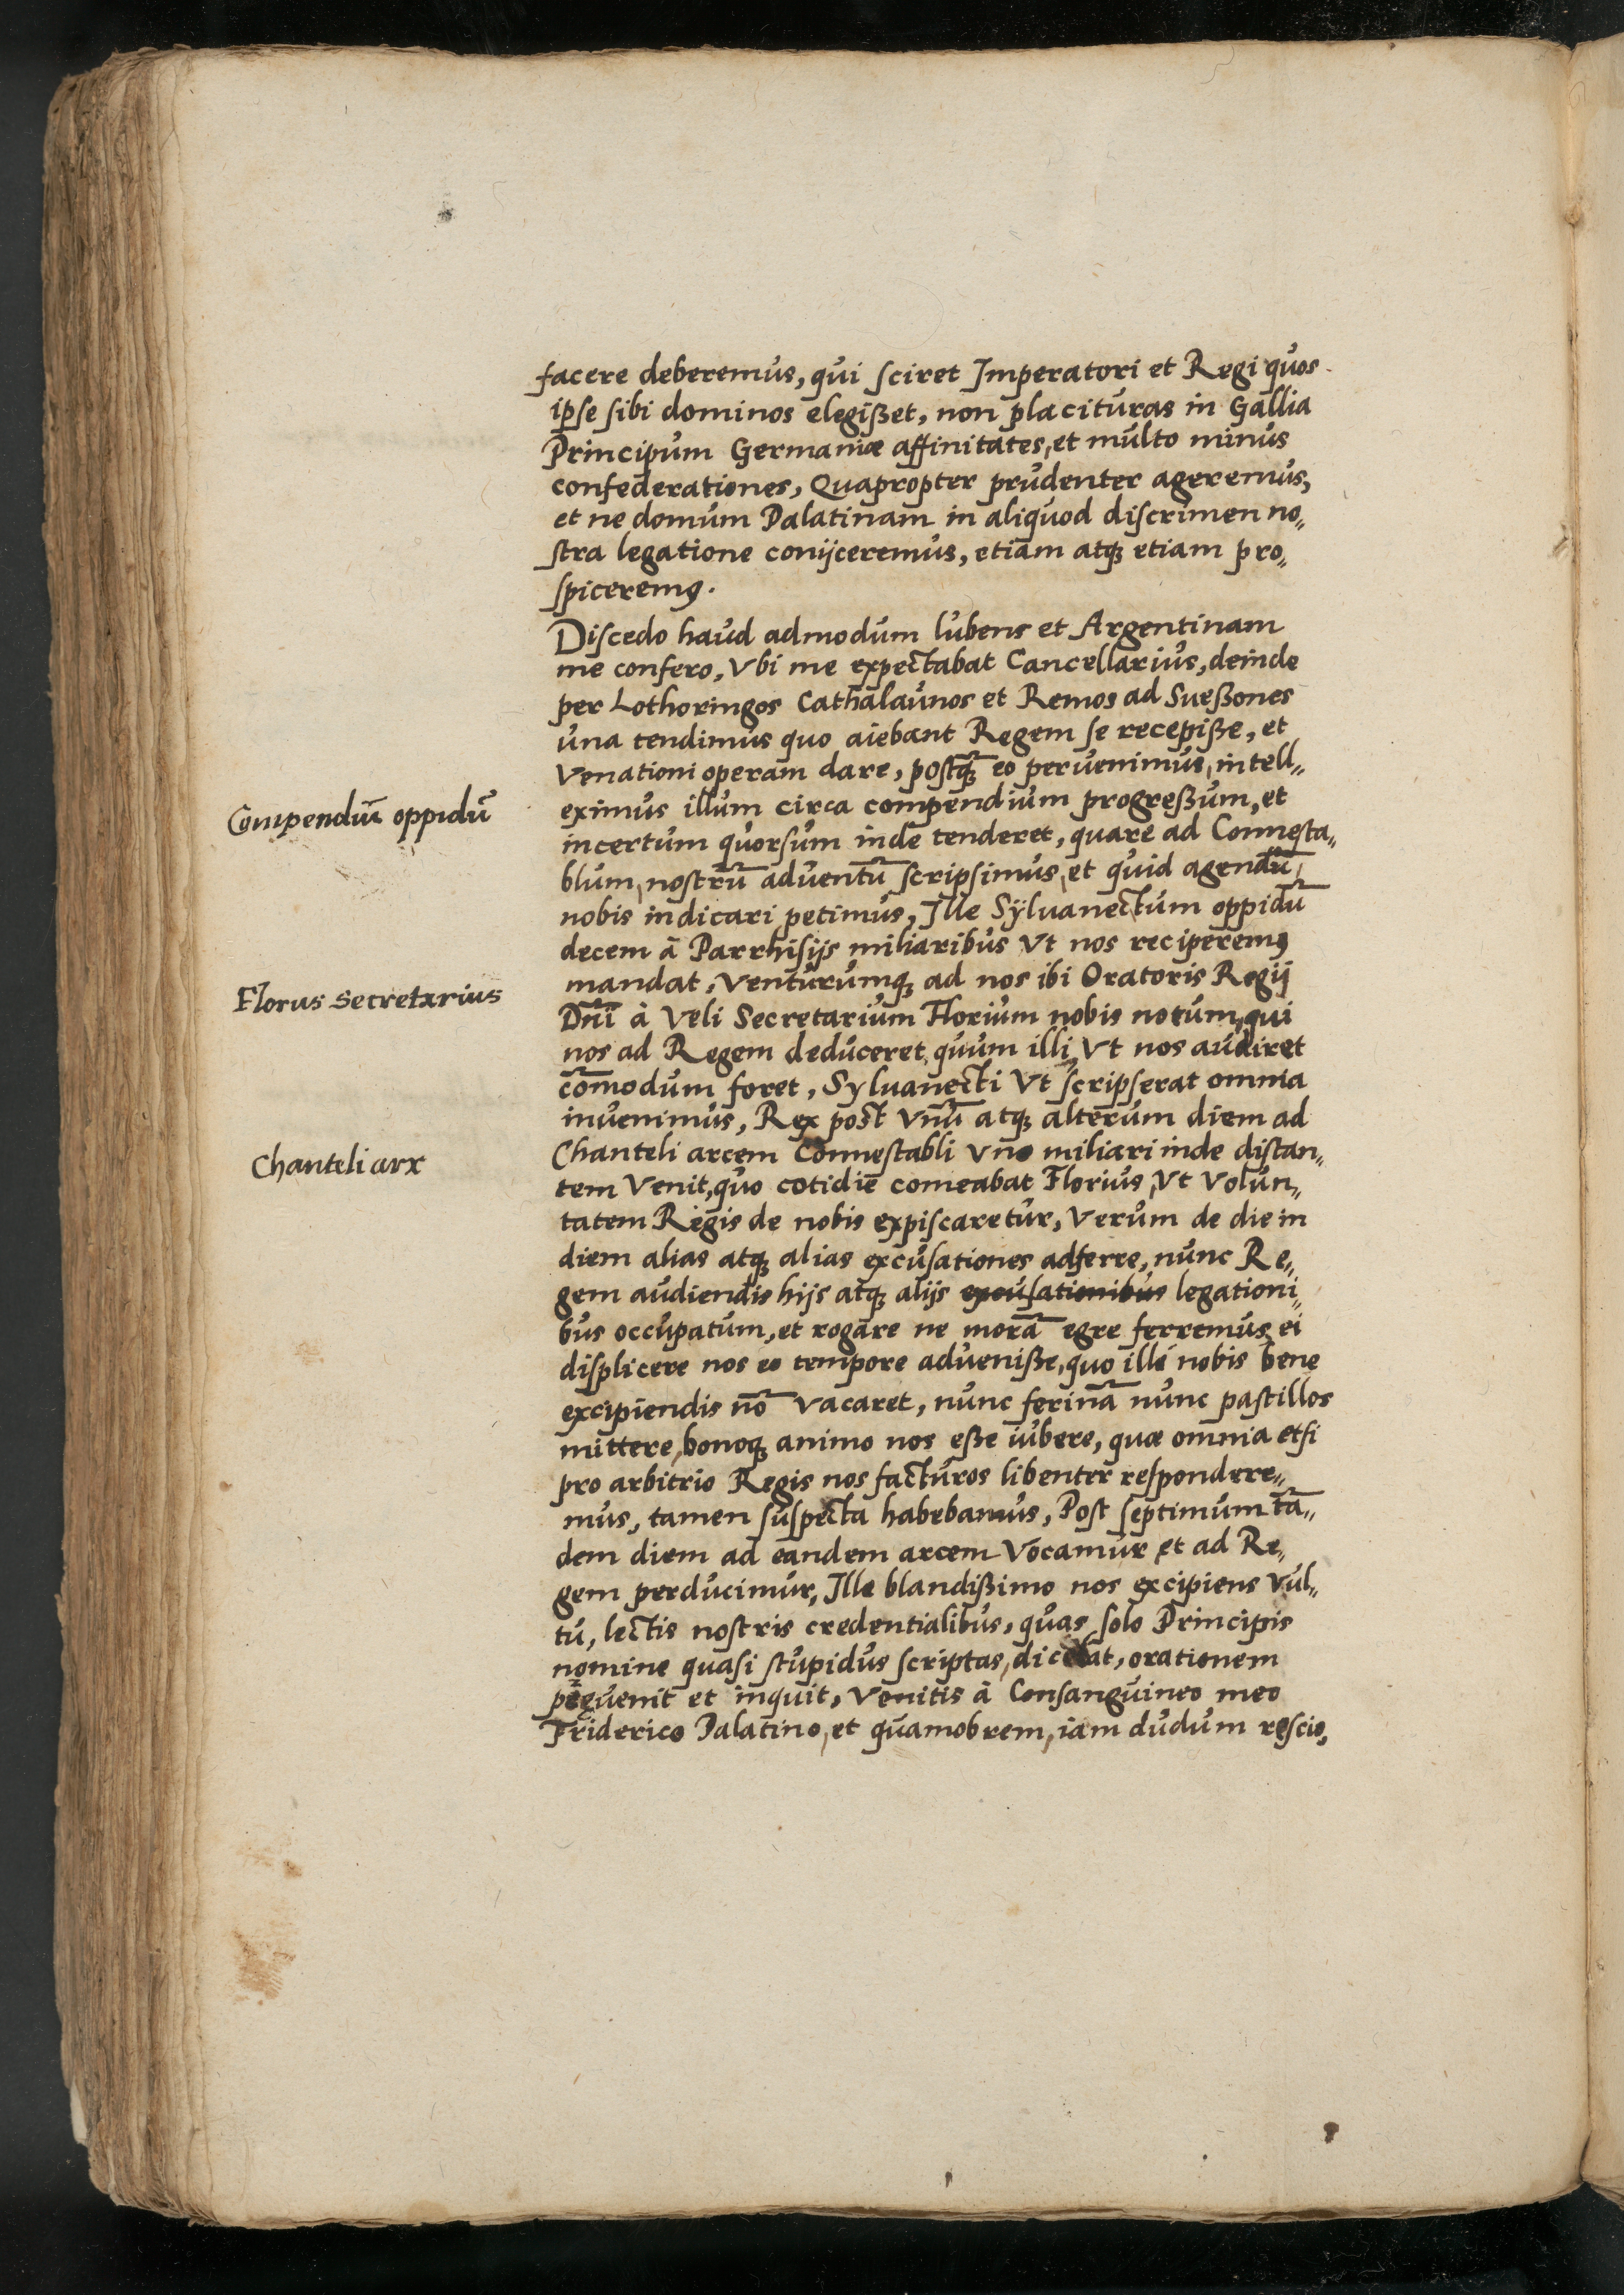 facere deberemus, qui sciret Imperatori et Regi quos
ipse sibi dominos elegißet, non placituras in Gallia
Principum Germaniæ affinitates, et multo minus
confederationes, Quapropter prudenter ageremus,
et ne domum Palatinam in aliquod discrimen no„
stra legatione conijceremus, etiam atq; etiam pro„
spiceremꝰ.
Discedo haud admodum lubens et Argentinam
me confero, Vbi me expectabat Cancellarius, deinde
per Lothoringos Cathalaunos et Remos ad Sueßones
una tendimus quo aiebant Regem se recepiße, et
Venationi operam dare, postq̃; eo peruenimus, intell„
Compendiũ oppidũ
eximus illum circa compendium progreßum, et
incertum quorsum inde tenderet, quare ad Connesta„
blum, nostrũ aduentũ scripsimus, et quid agendũ,
nobis indicari petimus, Ille Sÿluanectum oppidũ
decem à Parrhisijs miliaribus Vt nos reciperemꝰ
mandat, Venturumq; ad nos ibi Oratoris Regij
Florus secretarius
Dñi à Veli Secretarium Florium nobis notum, qui
nos ad Regem deduceret, quum illi, Vt nos audiret
cõmodum foret, Syluanecti Vt scripserat omnia
inuenimus, Rex post Vnũ atq; alterum diem ad
Chanteli arx
Chanteli arcem Connestabli Vno miliari inde distan„
tem Venit, quo cotidie comeabat Florius, Vt Volun„
tatem Regis de nobis expiscaretur, Verum de die in
diem alias atq; alias excusationes adferre, nunc Re„
gem audiendis hijs atq; alijs excusationibus legationi„
bus occupatum, et rogare ne morã egre ferremus, ei
displicere nos eo tempore adueniße, quo illi nobis bene
excipiendis nõ vacaret, nunc ferinã nunc pastillos
mittere, bonoq; animo nos eße iubere, quæ omnia etsi
pro arbitrio Regis nos facturos libenter respondere„
mus, tamen suspecta habebamus, Post septimum tã„
dem diem ad eandem arcem Vocamur et ad Re„
gem perducimur, Ille blandißimo nos excipiens Vul„
tu, lectis nostris credentialibus, quas solo Principis
nomine quasi stupidus scriptas, dicebat, orationem
peruenit et inquit, Venitis à Consanguineo meo
Friderico Palatino, et quamobrem, iam dudum rescio,